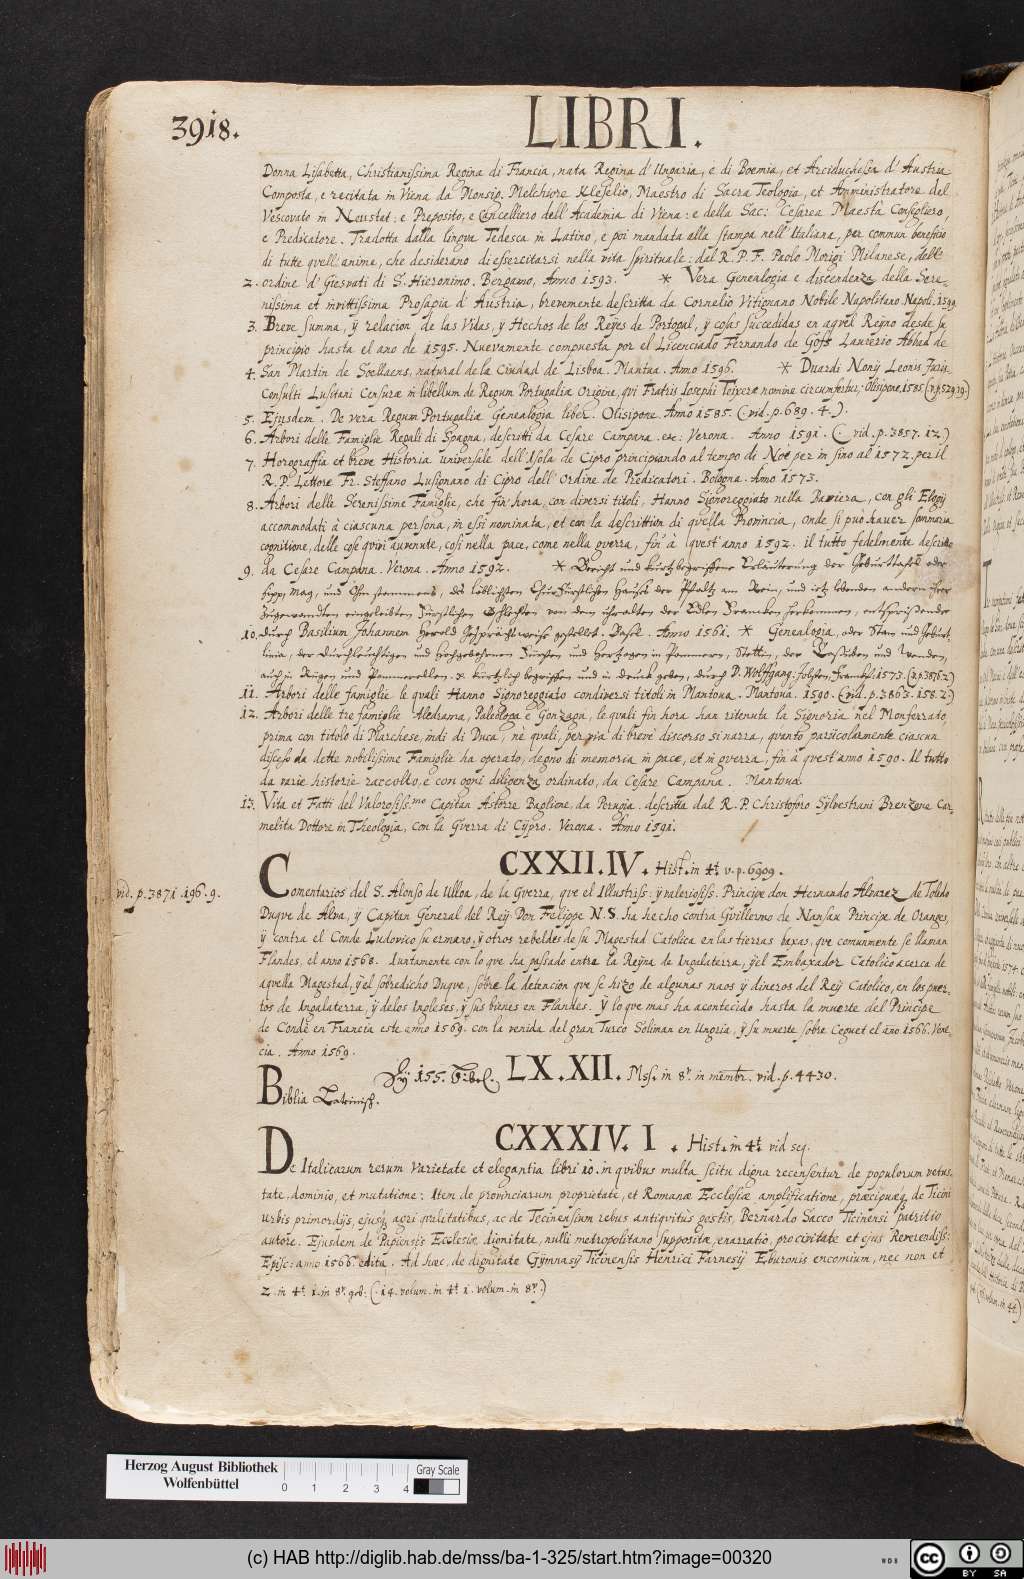 3918.
LIBRI.
Donna Lisabetta, Christianissima Regina di Francia, nata Regina d'Ungaria, e di Boemia, et Arciduchessa d'Austria
Composta, e recitata in Viena da Monsig. Melchiore Kleselio, Maestro di Sacra Teologia, et Amministratore del
Vescovato in Neustat: e Preposito, e Cancelliero dell Academia di Viena: e della Sac: Cesarea Maestà Consegliero,
e Predicatore. Tradotta dalla lingua Tedesca in Latino, e poi mandata alla stampa nell'Italiana, per commun beneficio
di tutte quell'anime, che desiderano di essercitarsi nella vita spirituale: dal R. P. F. Paolo Morigi Milanese, dell'
2. ordine d'Giesuati di S. Hieronimo. Bergamo, Anno 1593. * Vera Genealogia e discendenza della Sere-
nissima et invittissima Prosapia d'Austria, brevemente descritta da Cornelio Vitignano Nobile Napolitano. Napoli. 1599
3. Breve summa, ÿ relacion de las Vidas, ÿ Hechos de los Reÿes de Portogal, ÿ cosas succedidas en aquel Reÿno desde su
principio hasta el ano de 1595. Nuevamente compuesta por el Licenciado Fernando de Goss Lauverio Abbad de
4. San Martin de Soellaens, natural de la Ciudad de Lisboa. Mantua. Anno 1596. * Duardi Nonij Leonis Juris-
Consulti Lusitani Censuræ in libellum de Regum Portugaliæ Origine, qui Fratris Josephi Teixeræ nomine circumfertur; Olisipone. 1585. (v.p. 5249.19.)
5. Ejusdem. De vera Regum Portugaliæ Genealogia liber. Olisipone. Anno 1585. (: vid. p. 689. 4. :).
6. Arbori delle Famiglie Regali di Spagna, descritti da Cesare Campana. etc: Verona. Anno 1591. (: vid. p. 3857. 12.)
7. Horograffia et breve Historia universale dell Isola de Cipro principiando al tempo di Noè per in sino al 1572. per il
R. P. Lettore Fr. Steffano Lusignano di Cipro dell'Ordine de Predicatori. Bologna. Anno 1573.
8. Arbori delle Serenissime Famiglie, che fin'hora, con diversi titoli, Hanno Signoreggiato nella Baviera, con gli Elogij
accommodati à ciascuna persona, in essi nominata, et con la descrittion di quella Provincia, onde si può hauer sommaria
cognitione, delle cose quivi auvenute, cosi nella pace, come nella guerra, fin'à quest'anno 1592. il tutto fedelmente descritto
9. da Cesare Campana. Verona. Anno 1592. * Bericht und kurtzbegriffene Erleüterung der Geburttafel oder
Sipp, Mag, und Ohm stammens, des löblichsten ChurFürstlichen Hauses der Pfaltz am Rein, und ietz lebenden andern ihrer
zugewandten eingeleibten Fürstlichen Geschlechten von dem uhralten der Edlen Francken herkommen, entsprissender
10. durch Basilium Johannem Herold Gesprächsweise gestellet. Basel. Anno 1561. * Genealogia, oder Stam und Geburt,
linia, der Durchleuchtigen und Hochgebohrnen Fürsten und Hertzogen in Pommern, Stettin, der Cassuben und Wenden,
auch zu Rügen und Pommerellen. etc kürtzlich begriffen und in druck geben, durch D. Wolffgang. Jobsten, Franckf. 1573. (v.p. 3856.2)
11. Arbori delle famiglie le quali Hanno Signoreggiato con diversi titoli in Mantoua. Mantoua. 1590. (: vid. p. 3863. 158. 2.)
12. Arbori delle tre famiglie Aledrama, Paleologa e Gonzaga, le quali fin hora han ritenuta la Signoria nel Monferrato,
prima con titolo di Marchese, indi di Duca, ne quali, per via di breve discorso si narra, quanto particolarmente ciascun
disceso da dette nobilissime Famiglie ha operato, degno di memoria in pace, et in guerra, fin à quest'anno 1590. Il tutto
da varie historie raccolto, e con ogni diligenza ordinato, da Cesare Campana. Mantoua.
13. Vita et Fatti del Valorosiss.mo Capitan Astorre Baglione, da Perugia. descritta dal R. P. Christoforo Sÿlvestrani Brenzone Car-
melita Dottore in Theologia, con la Guerra di Cÿpro. Verona. Anno 1591.
CXXII. IV. Hist. in 4t. v. p. 6909.
vid. p. 3871. 196. 9.
Comentarios del S. Alonso de Ulloa, de la Guerra, que el Illustriss: ÿ valerosiss. Principe don Hernando Alvarez de Toledo
Duque de Alva, ÿ Capitan General del Reÿ Don Felippe N. S. ha hecho contra Guillermo de Nansau Principe de Oranges,
ÿ contra el Conde Ludovico su ermano, ÿ otros rebeldes de su Magestad Catolica en las tierras baxas, que comunmente se llaman
Flandes, el anno 1568. Iuntamente con lo que ha passado entre la Reÿna de Ingalaterra, ÿ el Embaxador Catolico acerca de
aquella Magestad, ÿ el sobredicho Duque, sobre la detencion que se hizo de algunas naos ÿ dineros del Reÿ Catolico, en los puer-
tos de Ingalaterra, ÿ de los Ingleses, ÿ sus bienes en Flandes. ÿ lo que mas ha acontecido hasta la muerte del Principe
de Condè en Francia este anno 1569. con la venida del gran Turco Soliman en Ungria, ÿ su muerte sobre Ceguet el año. 1566. Vene-
cia. Anno 1569.
LX. XII. Mss. in 8t. in membr. vid. p. 4430.
Biblia Lateinisch.
CXXXIV. I. Hist. in 4t. vid seq.
De Italicarum rerum varietate et elegantia libri 10. in quibus multa scitu digna recensentur de populorum vetus-
tate, dominio, et mutatione: Item de provinciarum proprietate, et Romanæ Ecclesiæ amplificatione, præcipuæq; de Ticini
urbis primordijs, ejusq; agri qualitatibus, ac de Ticinensium rebus antiquitùs gestis, Bernardo Sacco Ticinensi patritio
autore. Ejusdem de Papiensis Ecclesiæ dignitate, nulli metropolitano supposita, enarratio, pro civitate et ejus Reverendiss:
Episc: anno 1566. edita. Ad hæc, de dignitate Gÿmnasÿ Ticinensis Henrici Farnesÿ Eburonis encomium, nec non et
2. in 4t. 1. in 8t. geb: (: 14. volum. in 4t. 1. volum. in 8t. :)
Herzog August Bibliothek
Wolfenbüttel
0 1 2 3 4
Gray Scale
(c) HAB http://diglib.hab.de/mss/ba-1-325/start.htm?image=00320
WDB
cc BY SA